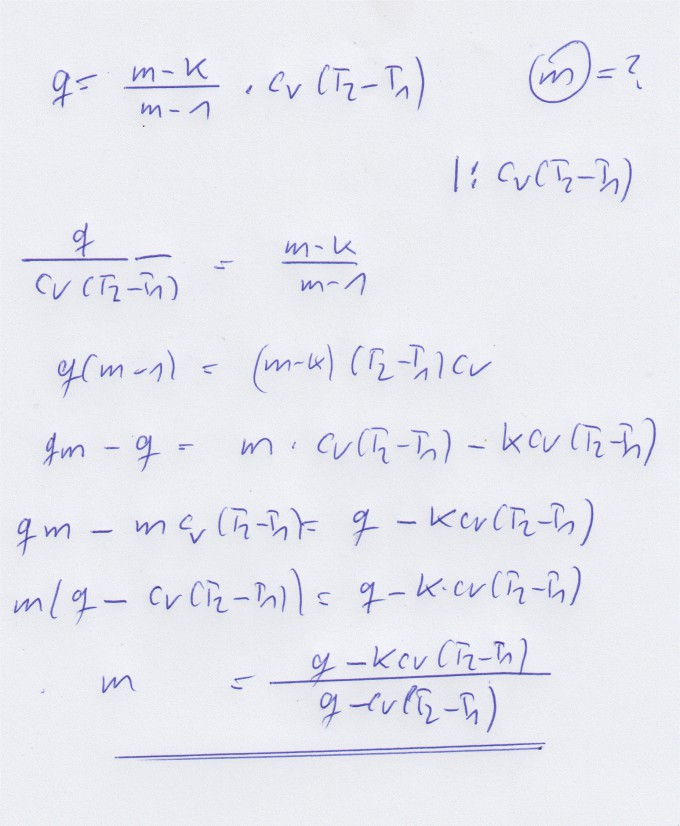 q = \frac{m-k}{m-1} \cdot c_v (T_2 - T_1)    (m) = ?
|: c_v (T_2 - T_1)
\frac{q}{c_v (T_2 - T_1)} = \frac{m-k}{m-1}
q(m-1) = (m-k) (T_2 - T_1) c_v
qm - q = m \cdot c_v (T_2 - T_1) - k c_v (T_2 - T_1)
qm - m c_v (T_2 - T_1) = q - k c_v (T_2 - T_1)
m(q - c_v (T_2 - T_1)) = q - k \cdot c_v (T_2 - T_1)
m = \frac{q - k c_v (T_2 - T_1)}{q - c_v (T_2 - T_1)}